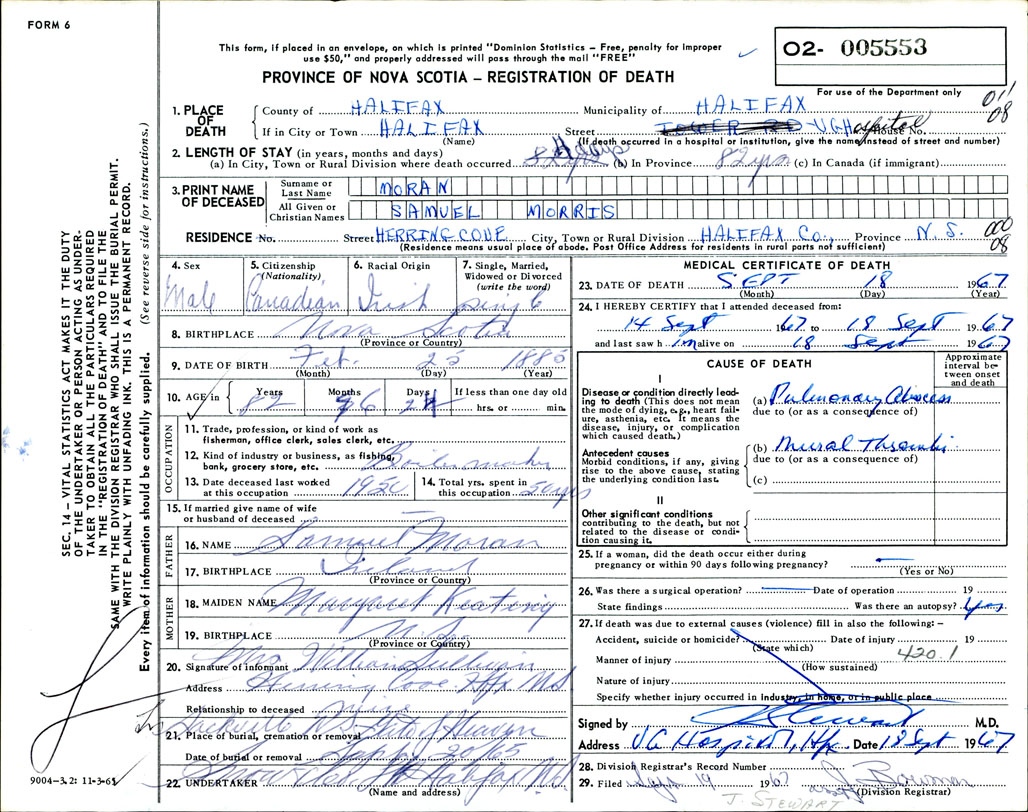 FORM 6
This form, if placed in an envelope, on which is printed "Dominion Statistics – Free, penalty for improper
use $50," and properly addressed will pass through the mail "FREE"
02- 005553
PROVINCE OF NOVA SCOTIA – REGISTRATION OF DEATH
For use of the Department only
011
08
1. PLACE OF DEATH
County of HALIFAX Municipality of HALIFAX
If in City or Town HALIFAX Street V.G Hospital House No.
(Name) (If death occurred in a hospital or institution, give the name instead of street and number)
2. LENGTH OF STAY (in years, months and days)
(a) In City, Town or Rural Division where death occurred 4 days (b) In Province 82 yrs (c) In Canada (if immigrant)
3. PRINT NAME OF DECEASED
Surname or Last Name MORAN
All Given or Christian Names SAMUEL MORRIS
RESIDENCE No. Street HERRING COVE City, Town or Rural Division HALIFAX Co., Province N.S.
000
08
(Residence means usual place of abode. Post Office Address for residents in rural parts not sufficient)
4. Sex
Male
5. Citizenship (Nationality)
Canadian
6. Racial Origin
Irish
7. Single, Married, Widowed or Divorced (write the word)
Single
8. BIRTHPLACE Nova Scotia
(Province or Country)
9. DATE OF BIRTH Feb. 25 1885
(Month) (Day) (Year)
10. AGE in Years 82 Months 6 Days 24 If less than one day old
hrs. or min.
OCCUPATION
11. Trade, profession, or kind of work as
fisherman, office clerk, sales clerk, etc.
12. Kind of industry or business, as fishing,
bank, grocery store, etc. Boilermaker
13. Date deceased last worked
at this occupation 1950
14. Total yrs. spent in
this occupation 50 yrs
15. If married give name of wife
or husband of deceased
FATHER
16. NAME Samuel Moran
17. BIRTHPLACE Ireland
(Province or Country)
MOTHER
18. MAIDEN NAME Margaret Keating
19. BIRTHPLACE N.S.
(Province or Country)
20. Signature of informant Mrs William Sullivan
Address Herring Cove Hfx N.S
Relationship to deceased niece
21. Place of burial, cremation or removal Sackville N.S. Gate of Heaven
Date of burial or removal Sept 20/65
22. UNDERTAKER Halifax N.S.
(Name and address)
MEDICAL CERTIFICATE OF DEATH
23. DATE OF DEATH SEPT 18 1967
(Month) (Day) (Year)
24. I HEREBY CERTIFY that I attended deceased from:
14 Sept 1967 to 18 Sept 1967
and last saw him alive on 18 Sept 1967
CAUSE OF DEATH
Approximate interval between onset and death
I
Disease or condition directly leading
to death (This does not mean
the mode of dying, e.g., heart failure,
asthenia, etc. It means the
disease, injury, or complication
which caused death.)
(a) Pulmonary Abscess
due to (or as a consequence of)
Antecedent causes
Morbid conditions, if any, giving
rise to the above cause, stating
the underlying condition last.
(b) Mural Thrombi
due to (or as a consequence of)
(c)
II
Other significant conditions
contributing to the death, but not
related to the disease or condition
causing it.
25. If a woman, did the death occur either during
pregnancy or within 90 days following pregnancy?
(Yes or No)
26. Was there a surgical operation? Date of operation 19
State findings Was there an autopsy? Yes
27. If death was due to external causes (violence) fill in also the following: –
Accident, suicide or homicide? Date of injury 19
(State which) 420.1
Manner of injury
(How sustained)
Nature of injury
Specify whether injury occurred in Industry, in home, or in public place
Signed by Stewart M.D.
Address V.G. Hospital, Hfx Date 18 Sept 1967
28. Division Registrar's Record Number
29. Filed Sept 19 1967 Bowman
(Division Registrar)
J. STEWART
9004-3.2: 11-3-65
SEC. 14 – VITAL STATISTICS ACT MAKES IT THE DUTY
OF THE UNDERTAKER OR PERSON ACTING AS UNDERTAKER
TO OBTAIN ALL THE PARTICULARS REQUIRED
IN THE "REGISTRATION OF DEATH" AND TO FILE THE
SAME WITH THE DIVISION REGISTRAR WHO SHALL ISSUE THE BURIAL PERMIT.
WRITE PLAINLY WITH UNFADING INK. THIS IS A PERMANENT RECORD.
Every item of information should be carefully supplied. (See reverse side for instructions.)